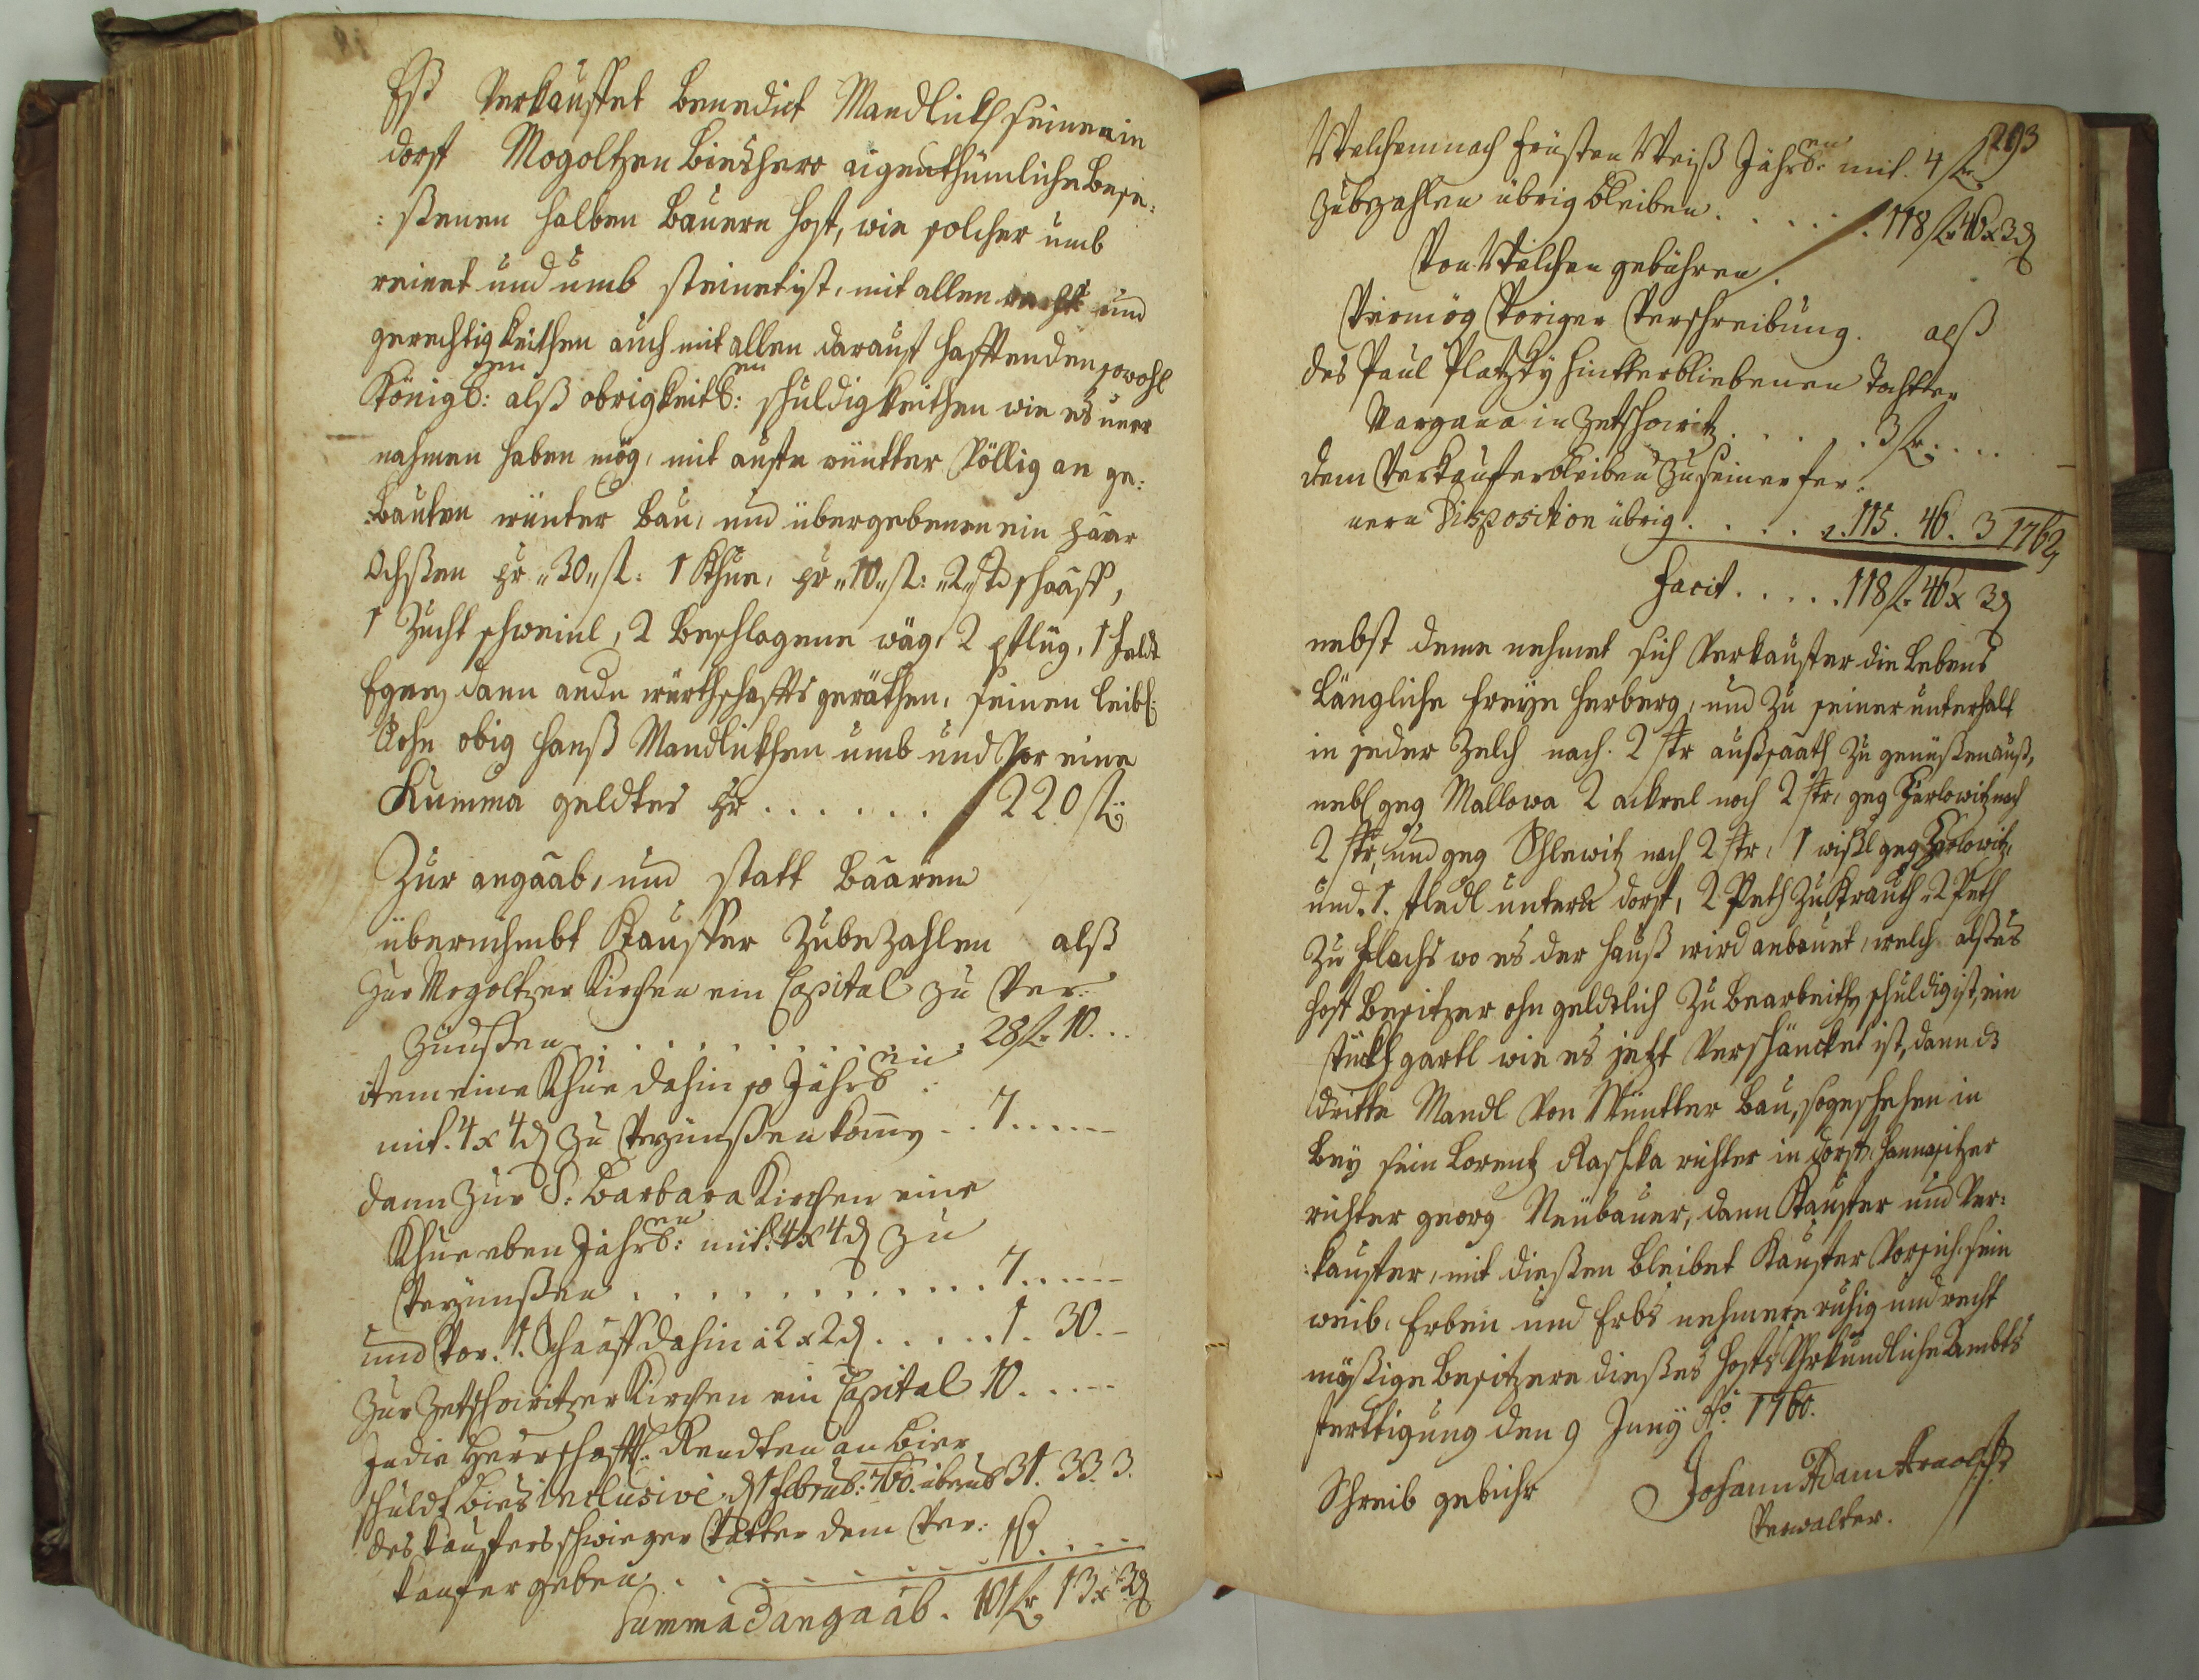 Eß Verkauffet Benedict Mandlickh seinen in
dorf Mogoltzen bieshero eigenthümliche Bese:
:ßenen halben Bauern hoff, wie solcher umb
reinet und umb steinet ist, mit allen recht und
gerechtigkeithen auch mit allen darauf hafftenden sowohl
Königl:en alß obrigkeitl:en schuldigkeithen wie es
nahmen haben mög, mit aufn wintter Völlig an ge:
:bauten wünter bau, und übergebenen ein paar
Ochßen pr „30„ fl: 1 Khue, pr „10„ fl: „2„ st schaaff,
1 Zucht schweinl, 2 beschlagene wäg, 2 pflüg, 1 feldt
Egen, dann ande würthschaffts geräthen, seinen leibl:
Sohn obig Hanß Mandlickhen umb und Vor eine
Summa geldtes pr . . . . . . 220 fl
Zur angaab, und statt baaren
übernehmbt Kauffer zubezahlen alß
Zur Mogoltzer Kirchen ein Capital zu Ver:
zünßen . . . . . . . . . . 28 fl 10 . .
item eine Khue dahin so Jährl:en
mit. 4 x 4 d zu Verzünßen komen . . 7 . . . . .
dann zur S: Barbara Kirchen eine
Khue eben Jährl:en mit: 4 x 4 d zu
Verzünßen . . . . . . . . . . . . 7 . . . . .
und Vor. 1. Schaaff dahin à 2 x 2 d . . . . . 1. 30. –
Zur Zetschowitzer Kirchen ein Capital 10 . . . . .
In die Herrschafftl: Rendten an bier
schuldt bies inclusive d 1 Febru: 760. 31. 33. 3.
des Kauffers schwieger Vatter dem Ver:
kaufer geben . . . . . . . . . .
Summa d angaab . 101 fl 13 x 3 d
293
Welchemnach fristen Weiß Jährl:en mit. 4 fl
zubezahlen übrig bleiben . . . . . 118 fl 46 x 3 d
Von Welchen gebühren
Vermög Voriger Verschreibung. alß
des Paul Platzky hintterbliebenen tochtter
Margara in Zetschowitz . . . . . 3 fl . . . .
dem Verkaufer bleiben zu seiner fer:
nern Disposition übrig . . . . . 115. 46. 3 1762
Facit . . . . . 118 fl 46 x 3 d
nebst deme nehmet sich Verkaufer die Lebens
Längliche freye herberg, und zu seiner unterhalt
in jeder Zelch nach. 2 str außsaath zu genüßen auß,
nebl geg Mallowa 2 ackerl nach 2 str, geg Horlowitz nach
2 str, und geg Schlewitz nach 2 str, 1 wießl geg Horlowitz,
und. 1. fledl untern dorf, 2 Peth zu Krauth 2 Peth
zu flachs wo es der hauß wird anbauet, welch alß es
hoff besitzer ohn geldtlich zu bearbeithen schuldig ist, ein
stückh gartl wie es jetzt Verschäncket ist, dann d
dritte Mandl Von Wüntter bau, so geschehen in
bey sein Lorentz Raschka richter in dorf, Hannasitzer
richter georg Neübauer, dann Kaufer und Ver:
:kaufer, mit dießen bleibet Kaufer Vor sich, sein
weib, Erben und Erbs nehmere ruhig und recht
mäßige besitzere dießes hoffs Uhrkundliche Ambts
fertttigung den 9 Juny Ao. 1760.
Schreib gebühr
Johann Adam
Verwalter.